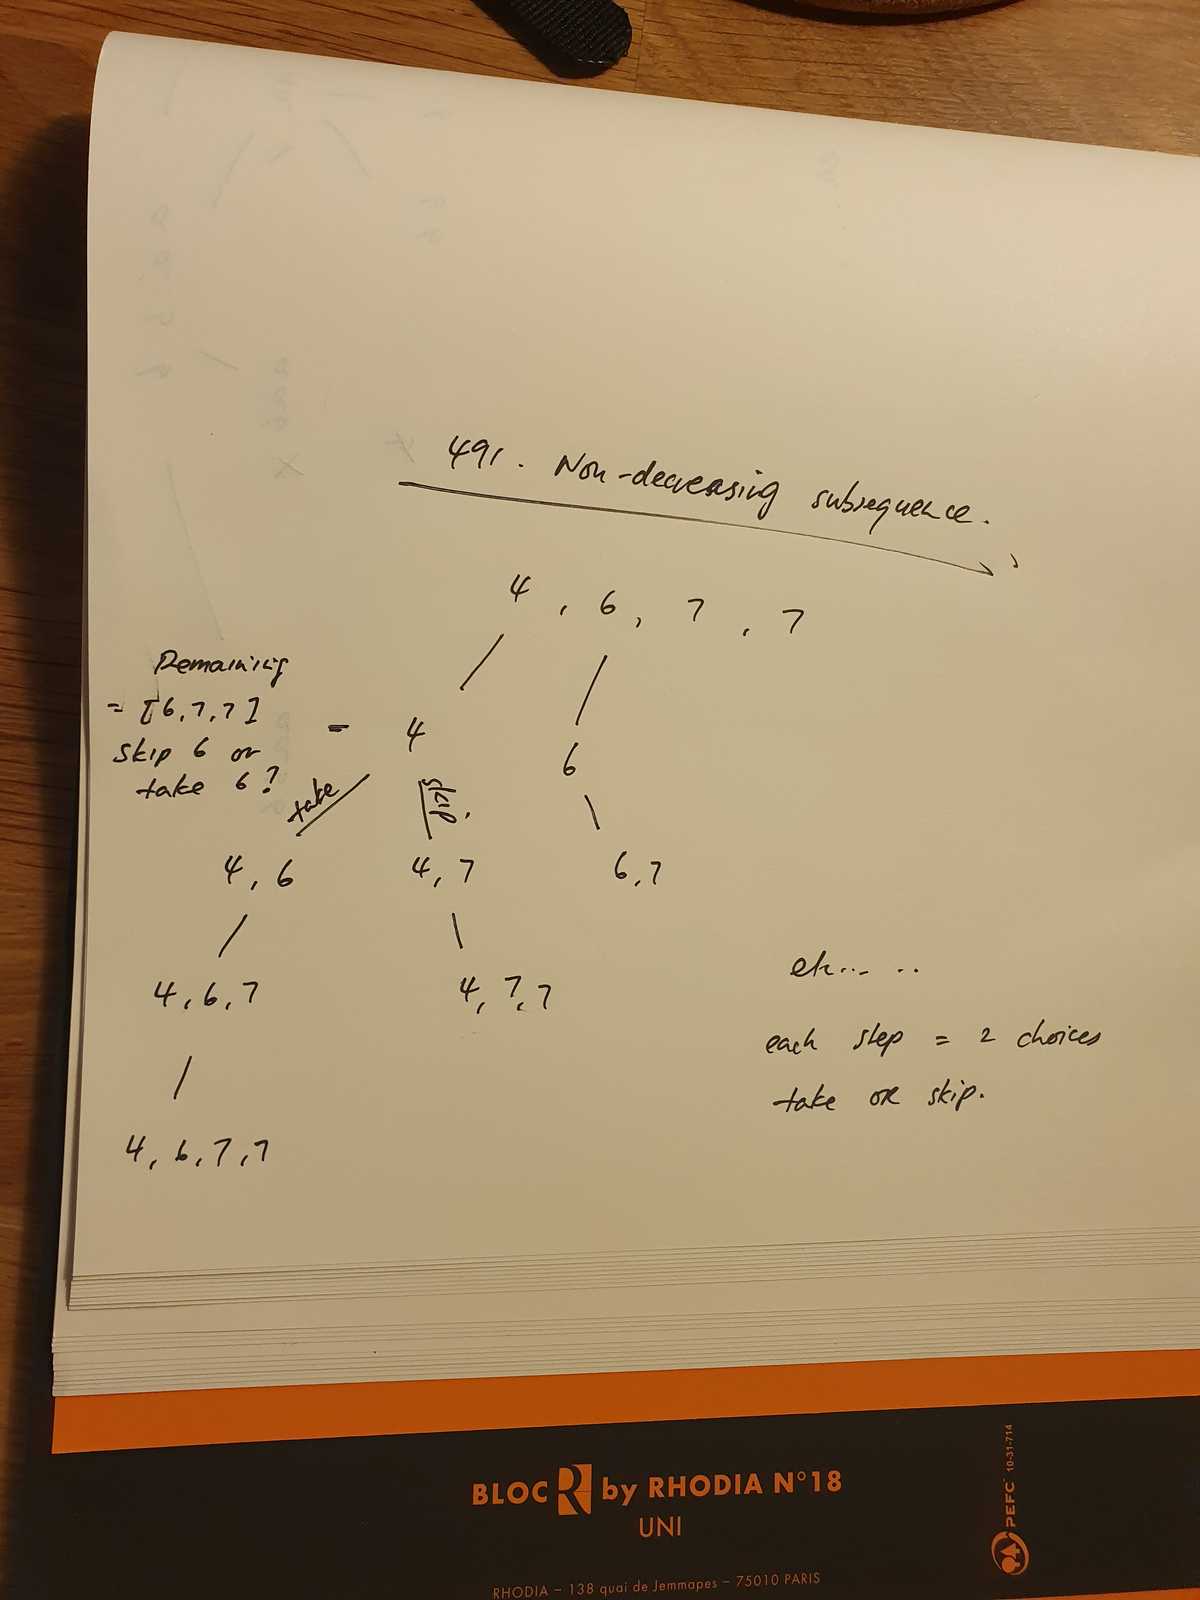 491. Non-decreasing subsequence.
4, 6, 7, 7
Remaining
= [6,7,7]
skip 6 or
take 6?
- 4
6
take
skip.
4, 6
4, 7
6,7
4,6,7
4,7,7
4,6,7,7
etc.....
each step = 2 choices
take OR skip.
BLOC R by RHODIA N°18
UNI
RHODIA – 138 quai de Jemmapes – 75010 PARIS
PEFC 10-31-714